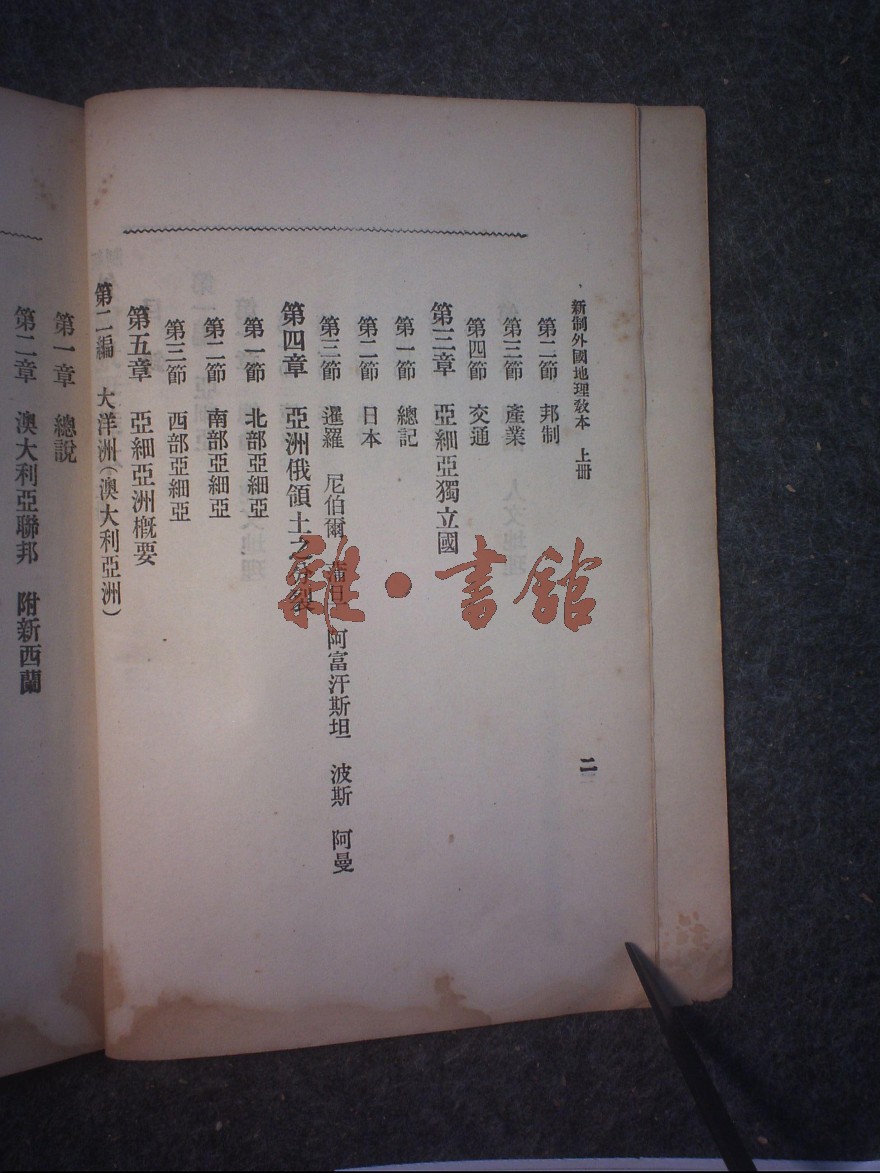 新制外國地理敎本 上册
二
第二節 邦制
第三節 產業
第四節 交通
第三章 亞細亞獨立國
第一節 總記
第二節 日本
第三節 暹羅 尼伯爾 蒲旦 阿富汗斯坦 波斯 阿曼
第四章 亞洲俄領土之分裂
第一節 北部亞細亞
第二節 南部亞細亞
第三節 西部亞細亞
第五章 亞細亞洲概要
第二編 大洋洲(澳大利亞洲)
第一章 總說
第二章 澳大利亞聯邦 附新西蘭
雜·書館